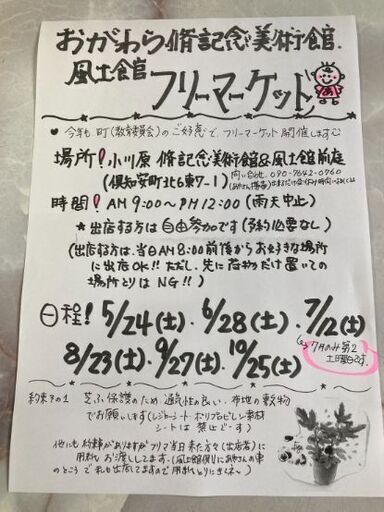 おがわら脩記念美術館.
風土館
フリーマーケット
♥ 今年も町(教育委員会)のご好意で、フリーマーケット開催します♡
場所! 小川原脩記念美術館&風土館前庭
(倶知安町北6東7-1)
問い合わせ 090-7642-0760
時間! AM 9:00~PM 12:00 (雨天中止)
* 出店する方は自由参加です(予約必要なし)
(出店する方は、当日AM 8:00前後からお好きな場所
に出店OK!! ただし、先に荷物だけ置いての
場所とりは NG!!)
日程! 5/24(土). 6/28(土). 7/12(土)
8/23(土). 9/27(土). 10/25(土)
7月のみ第2
土曜日です。
約束その1 芝ふ保護のため 通気性の良い、布地の敷物
でお願いします(レジャーシート・ポリプロピレン素材
シートは禁止でーす)
他にも約束がありますが フリマ当日来た方々(出店者)に
用紙 お渡ししてます。(風土館側に
のところで